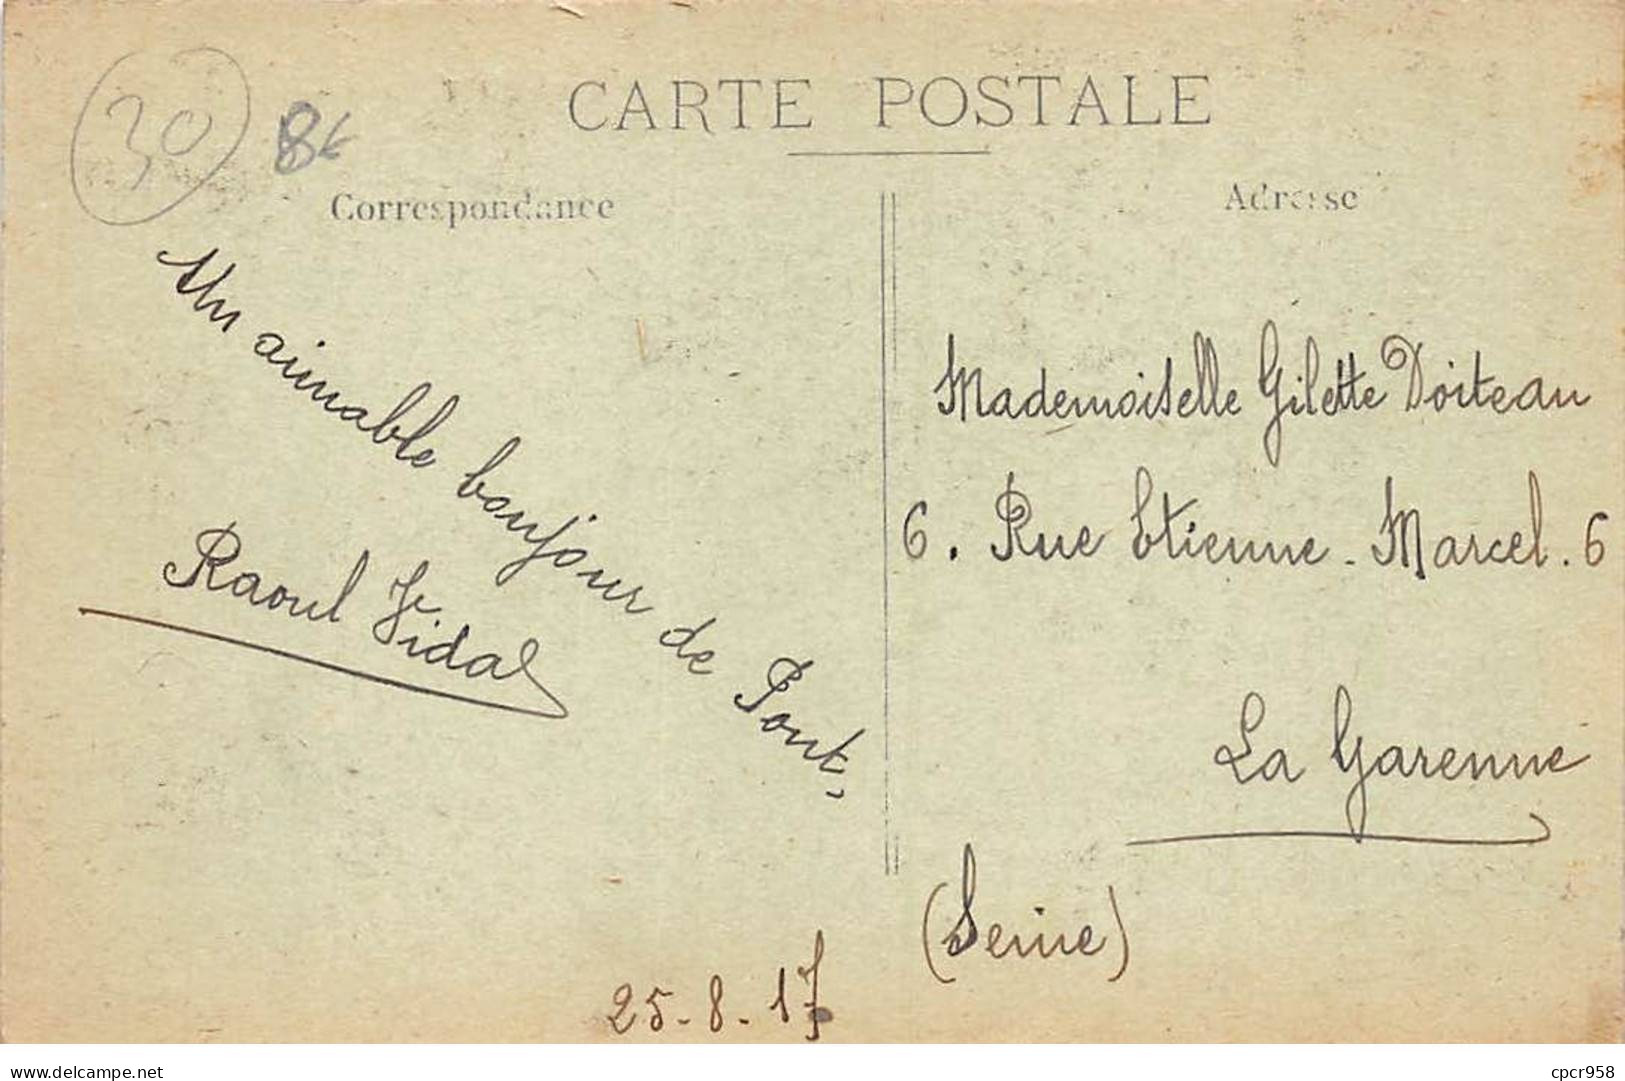 30
8€
CARTE POSTALE
Correspondance
Adresse
Un aimable bonjour de Pont,
Raoul Vidal
25-8-17
Mademoiselle Gilette Doiteau
6. Rue Etienne-Marcel. 6
La Garenne
(Seine)
delcampe.net
cpcr958